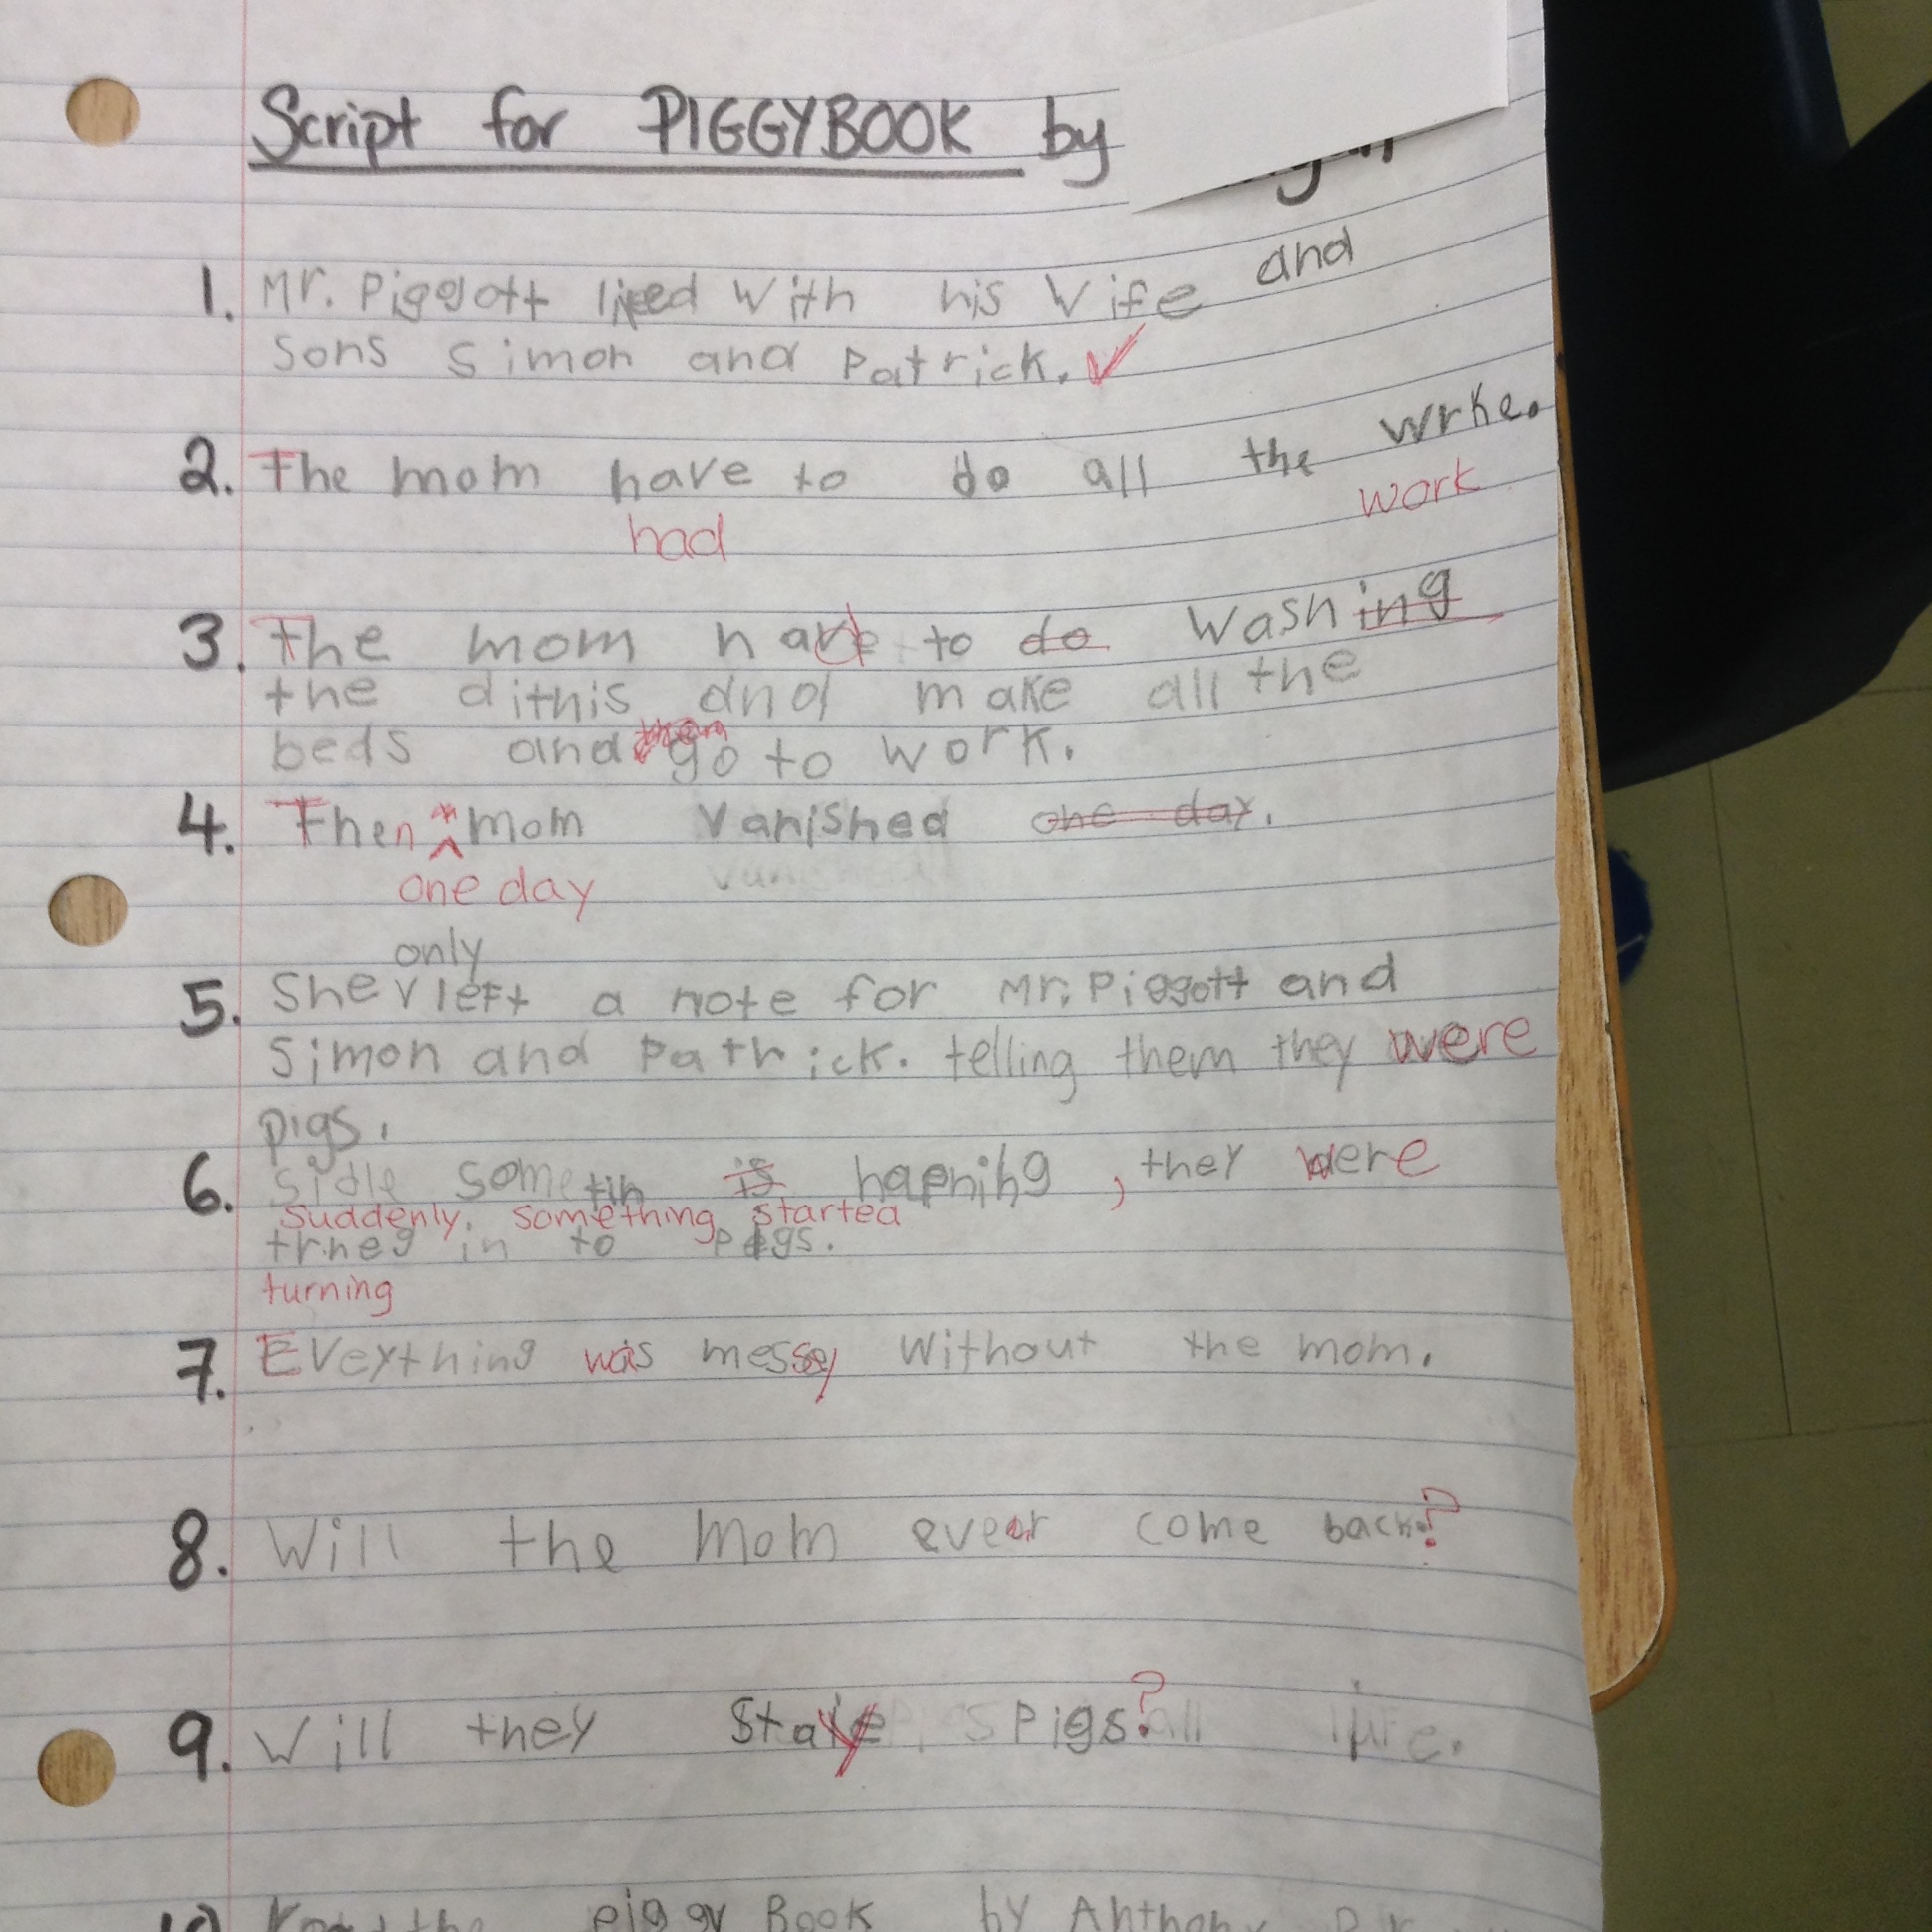 Script for PIGGYBOOK by
1. Mr. Piggott lived with his wife and
sons Simon and Patrick. ✓
2. The mom have to do all the wrke.
had work
3. The mom had to do washing
the dithis and make all the
beds and go to work.
4. Then mom vanished one day.
one day
only
5. She left a note for Mr. Piggott and
Simon and Pathick. telling them they were
pigs.
6. sidle sometin is hapning, they were
suddenly, something started
trneg in to pigs.
turning
7. Eveything was messy without the mom.
8. Will the mom ever come back?
9. Will they stay pigs? all life.
10 the piggy Book by Anthony